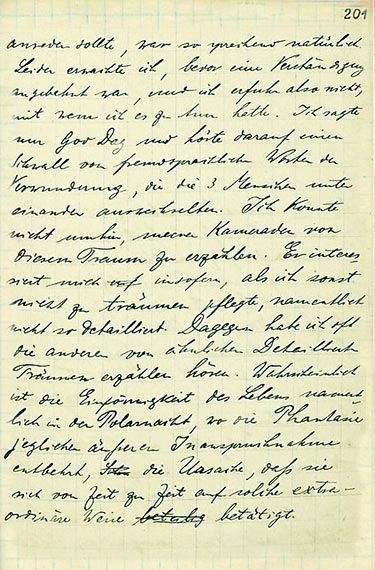 201
anreden sollte, war so sprechend natürlich.
Leider erwachte ich, bevor eine Verständigung
angebahnt war, und ich erfuhr also nicht,
mit wem ich es zu tun hatte. Ich sagte
nur God Dag und hörte darauf einen
Schwall von fremdsprachlichen Worten der
Verwunderung, die die 3 Menschen unter
einander auswechselten. Ich konnte
nicht umhin, meinen Kameraden von
diesem Traum zu erzählen. Er interes
siert mich auf insofern, als ich sonst
nicht zu träumen pflegte, namentlich
nicht so detailliert. Dagegen habe ich oft
die anderen von ähnlichen Detaillierten
Träumen erzählen hören. Wahrscheinlich
ist die Einförmigkeit des Lebens nament
lich in der Polarnacht, wo die Phantasie
jeglicher äußeren Inanspruchnahme
entbehrt, die Ursache, daß sie
sich von Zeit zu Zeit auf solche extra-
ordinäre Weise betätigt.